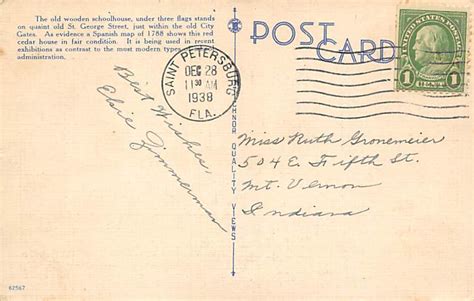 The old wooden schoolhouse, under three flags stands
on quaint old St. George Street, just within the old City
Gates. As evidence a Spanish map of 1788 shows this red
cedar house in fair condition. It is being used in recent
exhibitions as contrast to the most modern types
administration.
POST CARD
SAINT PETERSBURG
DEC 28
11 30 AM
1938
FLA.
1 1
CENT
Best Wishes,
Elsie Zimmerman
Miss Ruth Gronemeier
504 E. Fifth St.
Mt. Vernon
Indiana
HNOR QUALITY VIEWS
62567